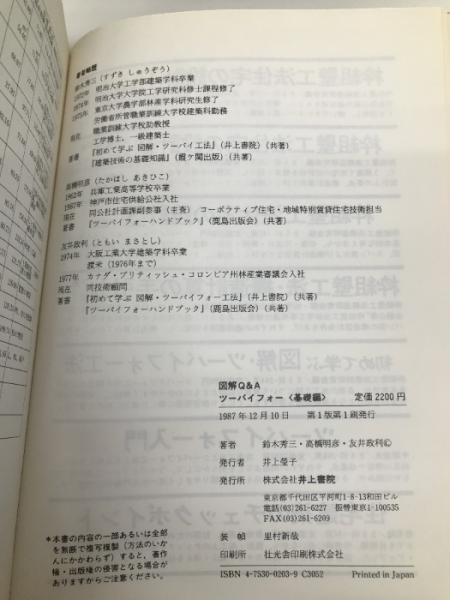 著者略歴
鈴木秀三(すずき しゅうぞう)
1972年 明治大学工学部建築学科卒業
1974年 明治大学大学院工学研究科修士課程修了
1975年 東京大学農学部林産学科研究生修了
労働省所管職業訓練大学校建築科勤務
現在 職業訓練大学校助教授
工学博士,一級建築士
著書 『初めて学ぶ 図解・ツーバイ工法』(井上書院)(共著)
『建築技術の基礎知識』(霞ケ関出版)(共著)
高橋明彦(たかはし あきひこ)
1962年 兵庫工業高等学校卒業
1967年 神戸市住宅供給公社入社
現在 同公社計画課副参事(主査) コーポラティブ住宅・地域特別賃貸住宅技術担当
著書 『ツーバイフォーハンドブック』(鹿島出版会)(共著)
友井政利(ともい まさとし)
1974年 大阪工業大学建築学科卒業
渡米(1976年まで)
1977年 カナダ・ブリティッシュ・コロンビア州林産業審議会入社
現在 同技術顧問
著書 『初めて学ぶ 図解・ツーバイフォー工法』(井上書院)(共著)
『ツーバイフォーハンドブック』(鹿島出版会)(共著)
図解Q&A
ツーバイフォー〈基礎編〉 定価2200円
1987年12月10日 第1版第1刷発行
著者 鈴木秀三・高橋明彦・友井政利©
発行者 井上瑩子
発行所 株式会社 井上書院
東京都千代田区平河町1-8-13和田ビル
電話(03)261-6227 振替東京1-100535
FAX(03)261-6248
装幀 里村新哉
印刷所 壮光舎印刷株式会社
ISBN 4-7530-0203-9 C3052 Printed in Japan
*本書の内容の一部あるいは全部
を無断で複写複製(方法のいか
んにかかわらず)すると、著作
権・出版権の侵害となる場合が
ありますからご注意ください。